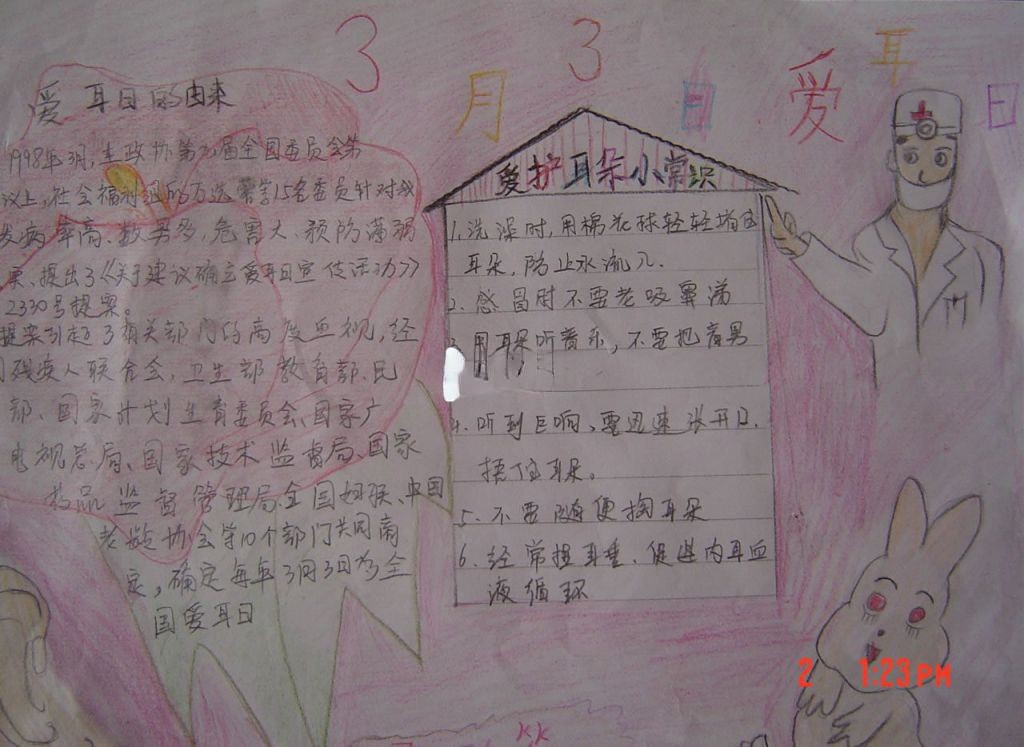 3月3日爱耳日
爱耳日的由来
1998年3月,在政协第九届全国委员会第
议上,社会福利组的万选蓉等15名委员针对我
发病率高、数另多,危害大,预防薄弱
果、提出了《关于建议确立爱耳日宣传活动》
2330号提案。
提案引起了有关部门的高度重视,经
残疾人联合会,卫生部教育部、民
部、国家计划生育委员会、国家广
电视总局、国家技术监督局、国家
药品监督管理局、全国妇联、中国
老龄协会等10个部门共同商
定,确定每年3月3日为全
国爱耳日
爱护耳朵小常识
1.洗澡时,用棉花球轻轻堵
耳朵,防止水流入.
2.感冒时不要老吸鼻涕
用耳朵听音乐,不要把音
4.听到巨响、要迅速张开口,
捂住耳朵。
5.不要随便掏耳朵
6.经常提耳垂、促进内耳血
液循环
2 1:23PM